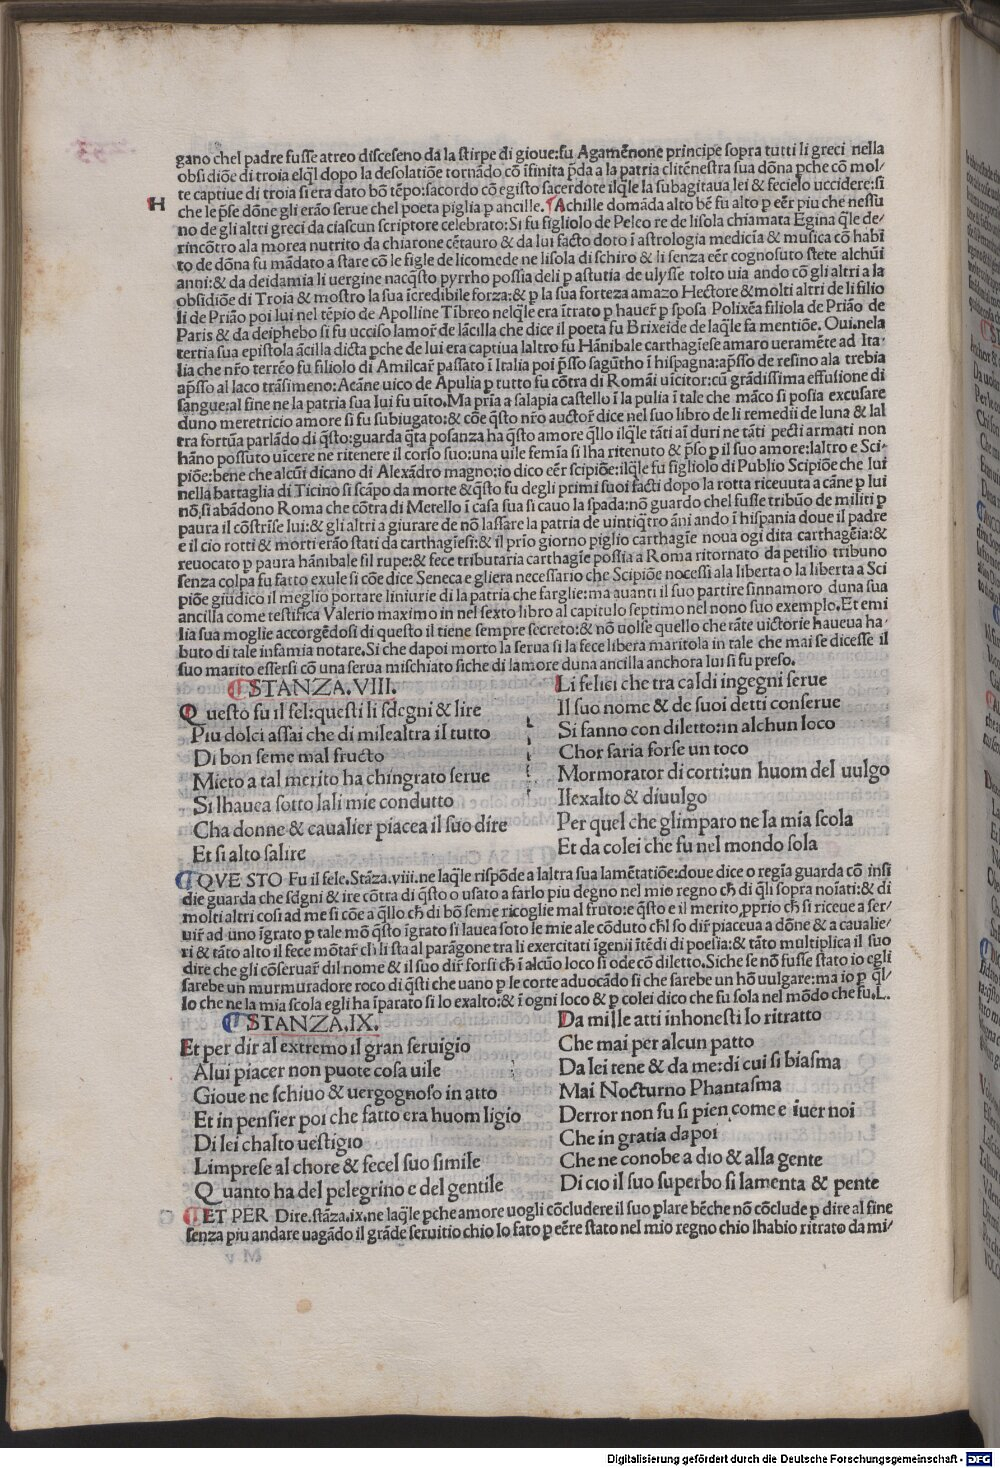 gano chel padre fusse atreo disceseno da la stirpe di gioue:fu Agamēnone principe sopra tutti li greci nella
obsidiōe di troia elq̄l dopo la desolatiōe tornādo cō īfinita p̄da a la patria clitēnestra sua dōna pche cō mol-
te captiue di troia si era dato bō tēpo:sacordo cō egisto sacerdote ilq̄le la subagitaua lei & fecielo uccidere:si
H
che le p̄se dōne gli erāo serue chel poeta piglia p ancille.¶Achille domāda alto bē fu alto p eēr piu che nessu
no de gli altri greci da ciascun scriptore celebrato:Si fu figliolo di Peleo re de lisola chiamata Egina q̄le de/
rincōtro ala morea nutrito da chiarone cētauro & da lui facto doto ī astrologia medicīa & musica cō habī
to de dōna fu mādato a stare cō le figle de licomede ne lisola di schiro & li senza eēr cognosuto stete alchūi
anni:& da deidamia li uergine nacq̄sto pyrrho possia deli p astutia de ulysse tolto uia ando cō gli altri a la
obsidiōe di Troia & mostro la sua īcredibile forza:& p la sua forteza amazo Hectore & molti altri de li filio
li de Priāo poi lui nel tēpio de Apolline Tibreo nelq̄le era ītrato p hauer̄ p sposa Polixēa filiola de Priāo de
Paris & da deiphebo si fu ucciso lamor̄ de lācilla che dice il poeta fu Brixeide de laq̄le fa mentiōe. Oui.nela
tertia sua epistola ācilla dicta pche de lui era captiua laltro fu Hānibale carthagīese amaro ueramēte ad Ita-
lia che nr̄o terrēo fu filiolo di Amilcar̄ passato ī Italia poi p̄sso sagūtho ī hispagna:ap̄sso de resino ala trebia
ap̄sso al laco trāsimeno:Acāne uico de Apulia p tutto fu cōtra di Romāi uīcitor:cū grādissima effusione di
sangue:al fine ne la patria sua lui fu uīto.Ma prīa a salapia castello ī la pulia ī tale che māco si posia excusare
duno meretricio amore si fu subiugato:& cōe q̄sto nr̄o auctor̄ dice nel suo libro de li remedii de luna & lal
tra fortūa parlādo di q̄sto:guarda q̄ta posanza ha q̄sto amore q̄llo ilq̄le tāti aī duri ne tāti pecti armati non
hāno possuto uīcere ne ritenere il corso suo:una uile femīa si lha ritenuto & p̄so p il suo amore:laltro e Sci-
piōe:bene che alcūi dicano di Alexādro magno:io dico eēr scipiōe:ilq̄le fu figliolo di Publio Scipiōe che lui
nella battaglia di Ticino si scāpo da morte & q̄sto fu degli primi suoi facti dopo la rotta riceuuta a cāne p lui
nō si abādono Roma che cōtra di Merello ī casa sua si cauo la spada:nō guardo chel fusse tribūo de militi p
paura il cōstrīse lui:& gli altri a giurare de nō lassare la patria de uintiq̄tro āni ando ī hispania doue il padre
e il cio rotti & morti erāo stati da carthagiesi:& il prīo giorno piglio carthagīe noua ogi dita carthagēia:&
reuocato p paura hānibale fil rupe:& fece tributaria carthagīe possia a Roma ritornato da petilio tribuno
senza colpa fu fatto exule si cōe dice Seneca e gliera necessario che Scipiōe nocessi ala liberta o la liberta a Sci
piōe giudico il meglio portare liniurie di la patria che farglie:ma auanti il suo partire sinnamoro duna sua
ancilla come testifica Valerio maximo in nel sexto libro al capitulo septimo nel nono suo exemplo.Et emi
lia sua moglie accorgēdosi di questo il tiene sempre secreto:& nō uolse quello che tāte uictorie haueua ha-
buto di tale infamia notare.Si che dapoi morto la serua si la fece libera maritola in tale che mai se dicesse il
suo marito essersi cō una serua mischiato siche di lamore duna ancilla anchora lui si fu preso.
¶STANZA.VIII.
Questo fu il fel:questi li sdegni & lire
Piu dolci assai che di milealtra il tutto
Di bon seme mal fructo
Mieto a tal merito ha chingrato serue
Si lhauea sotto lali mie condutto
Cha donne & caualier piacea il suo dire
Et si alto salire
Li felici che tra caldi ingegni serue
Il suo nome & de suoi detti conserue
Si fanno con diletto:in alchun loco
Chor saria forse un toco
Mormorator di corti:un huom del uulgo
Ilexalto & diuulgo
Per quel che glimparo ne la mia scola
Et da colei che fu nel mondo sola
¶QVESTO Fu il fele.Stāza.viii.ne laq̄le rispōde a laltra sua lamētatiōe:doue dice o regīa guarda cō insi
die guarda che sdgni & ire cōtra di q̄sto o usato a farlo piu degno nel mio regno ch̄ di q̄li sopra noīati:& di
molti altri cosi ad me si cōe a q̄llo ch̄ di bō seme ricoglie mal fruto:e q̄sto e il merito pprio ch̄ si riceue a ser/
uir̄ ad uno īgrato p tale mō q̄sto īgrato si lauea soto le mie ale cōduto ch̄l so dir̄ piaceua a dōne & a caualie-
ri & tāto alto il fece mōtar̄ ch̄ li sta al parāgone tra li exercitati īgenii ītēdi di poesia:& tāto multiplica il suo
dire che gli cōseruar̄ dil nome & il suo dir̄ forsi ch̄ ī alcūo loco si ode cō diletto.Siche se nō fusse stato io egli
sarebe un murmuradore roco di q̄sti che uano p le corte aduocādo si che sarebe un hō uulgare:ma io p q̄l/
lo che ne la mia scola egli ha īparato si lo exalto:& ī ogni loco & p colei dico che fu sola nel mōdo che fu.L.
¶STANZA.IX.
Et per dir al extremo il gran seruigio
Alui piacer non puote cosa uile
Gioue ne schiuo & uergognoso in atto
Et in pensier poi che fatto era huom ligio
Di lei chalto uestigio
Limprese al chore & fecel suo simile
Quanto ha del pelegrino e del gentile
Da mille atti inhonesti lo ritratto
Che mai per alcun patto
Da lei tene & da me:di cui si biasma
Mai Nocturno Phantasma
Derror non fu si pien come e iuer noi
Che in gratia dapoi
Che ne conobe a dio & alla gente
Di cio il suo superbo si lamenta & pente
¶ET PER Dire.stāza.ix.ne laq̄le pche amore uogli cōcludere il suo plare bēche nō cōclude p dire al fine
senza piu andare uagādo il grāde seruitio chio lo fato p eēre stato nel mio regno chio lhabio ritrato da mi/
Digitalisierung gefördert durch die Deutsche Forschungsgemeinschaft - DFG